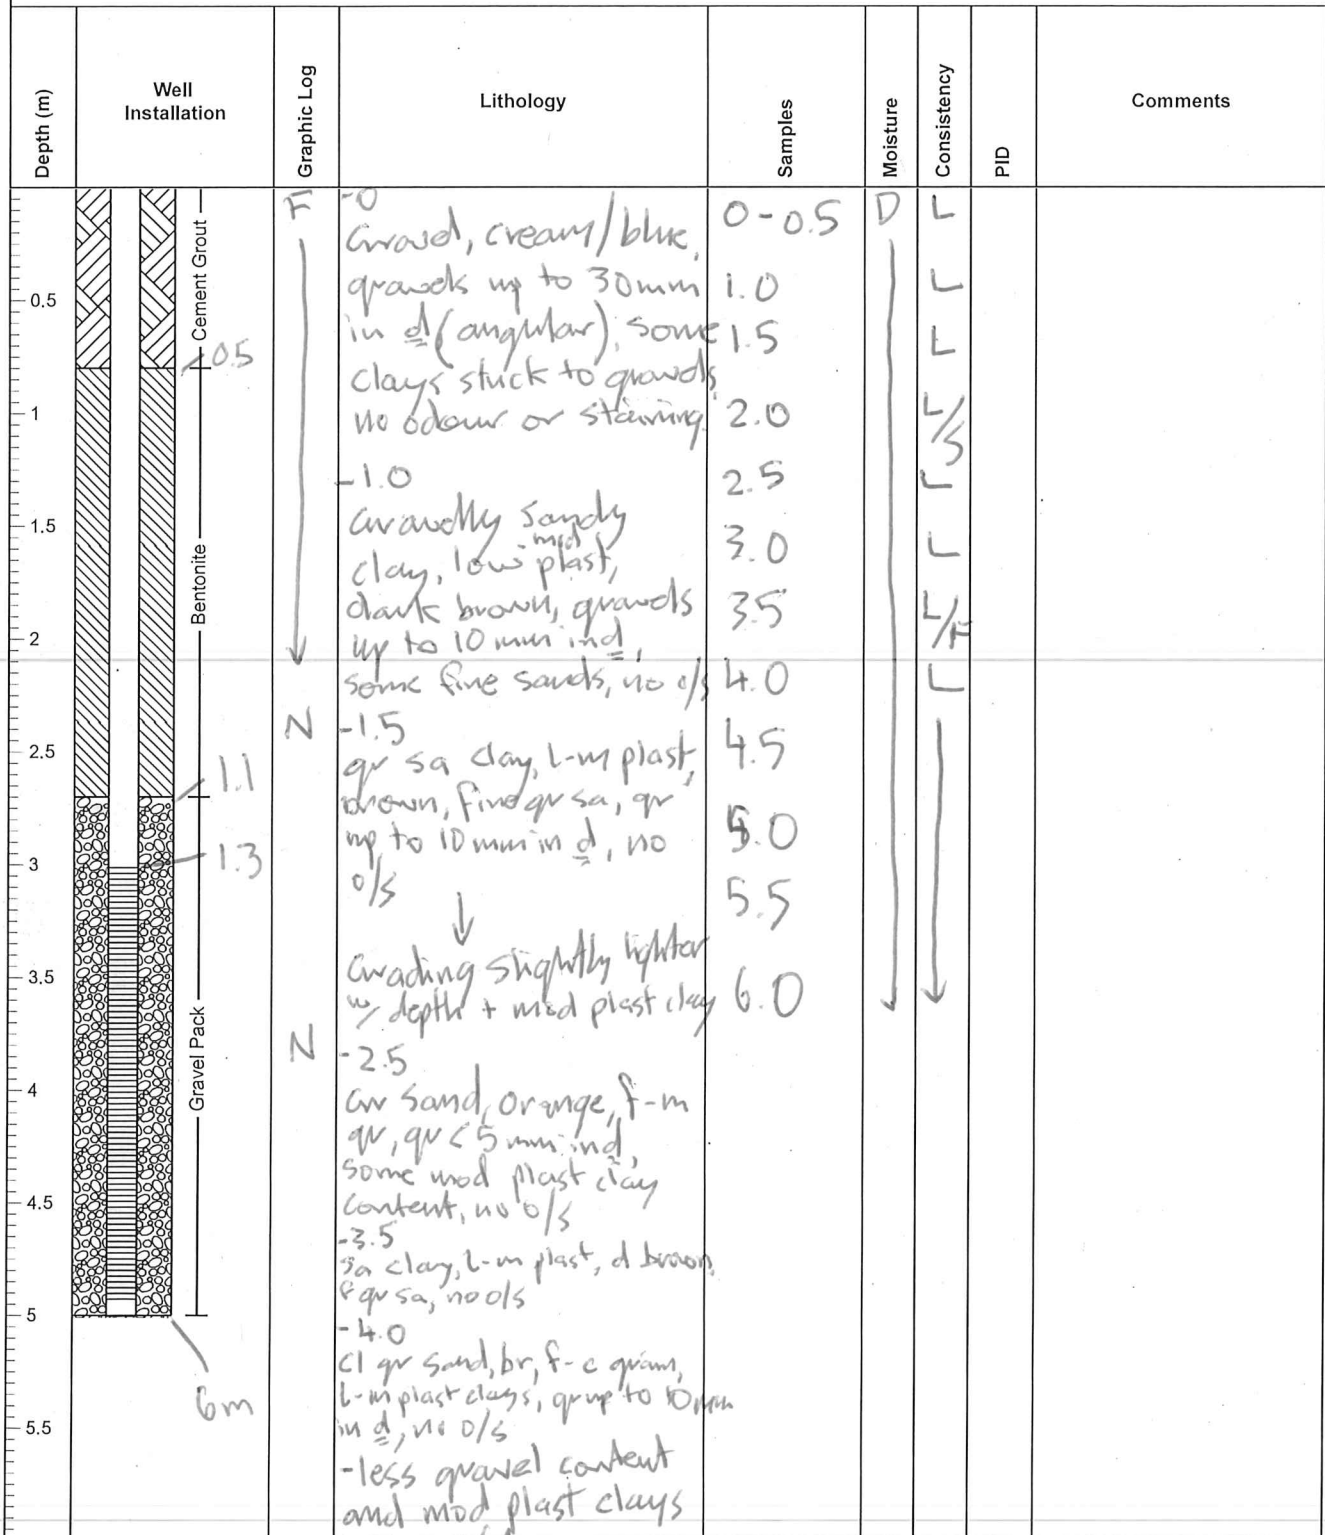 Depth (m)
Well
Installation
Graphic Log
Lithology
Samples
Moisture
Consistency
PID
Comments
0.5
1
1.5
2
2.5
3
3.5
4
4.5
5
5.5
Cement Grout
0.5
Bentonite
1.1
1.3
Gravel Pack
6m
F
N
N
-0
Gravel, cream/blue,
gravels up to 30mm
in d (angular), some
clays stuck to gravels,
no odour or staining.
-1.0
Gravelly sandy
clay, low-mod plast,
dark brown, gravels
up to 10mm in d,
some fine sands, no o/s
-1.5
gr sa clay, l-m plast,
brown, fine gr sa, gr
up to 10mm in d, no
o/s
Grading slightly lighter
w/ depth + mod plast clay
-2.5
Gr Sand, orange, f-m
gr, gr <5mm in d,
some mod plast clay
content, no o/s
-3.5
sa clay, l-m plast, d brown,
f gr sa, no o/s
-4.0
cl gr sand, br, f-c grain,
l-m plast clays, gr up to 10mm
in d, no o/s
-less gravel content
and mod plast clays
0-0.5
1.0
1.5
2.0
2.5
3.0
3.5
4.0
4.5
5.0
5.5
6.0
D
L
L
L
L/S
L
L
L/F
L